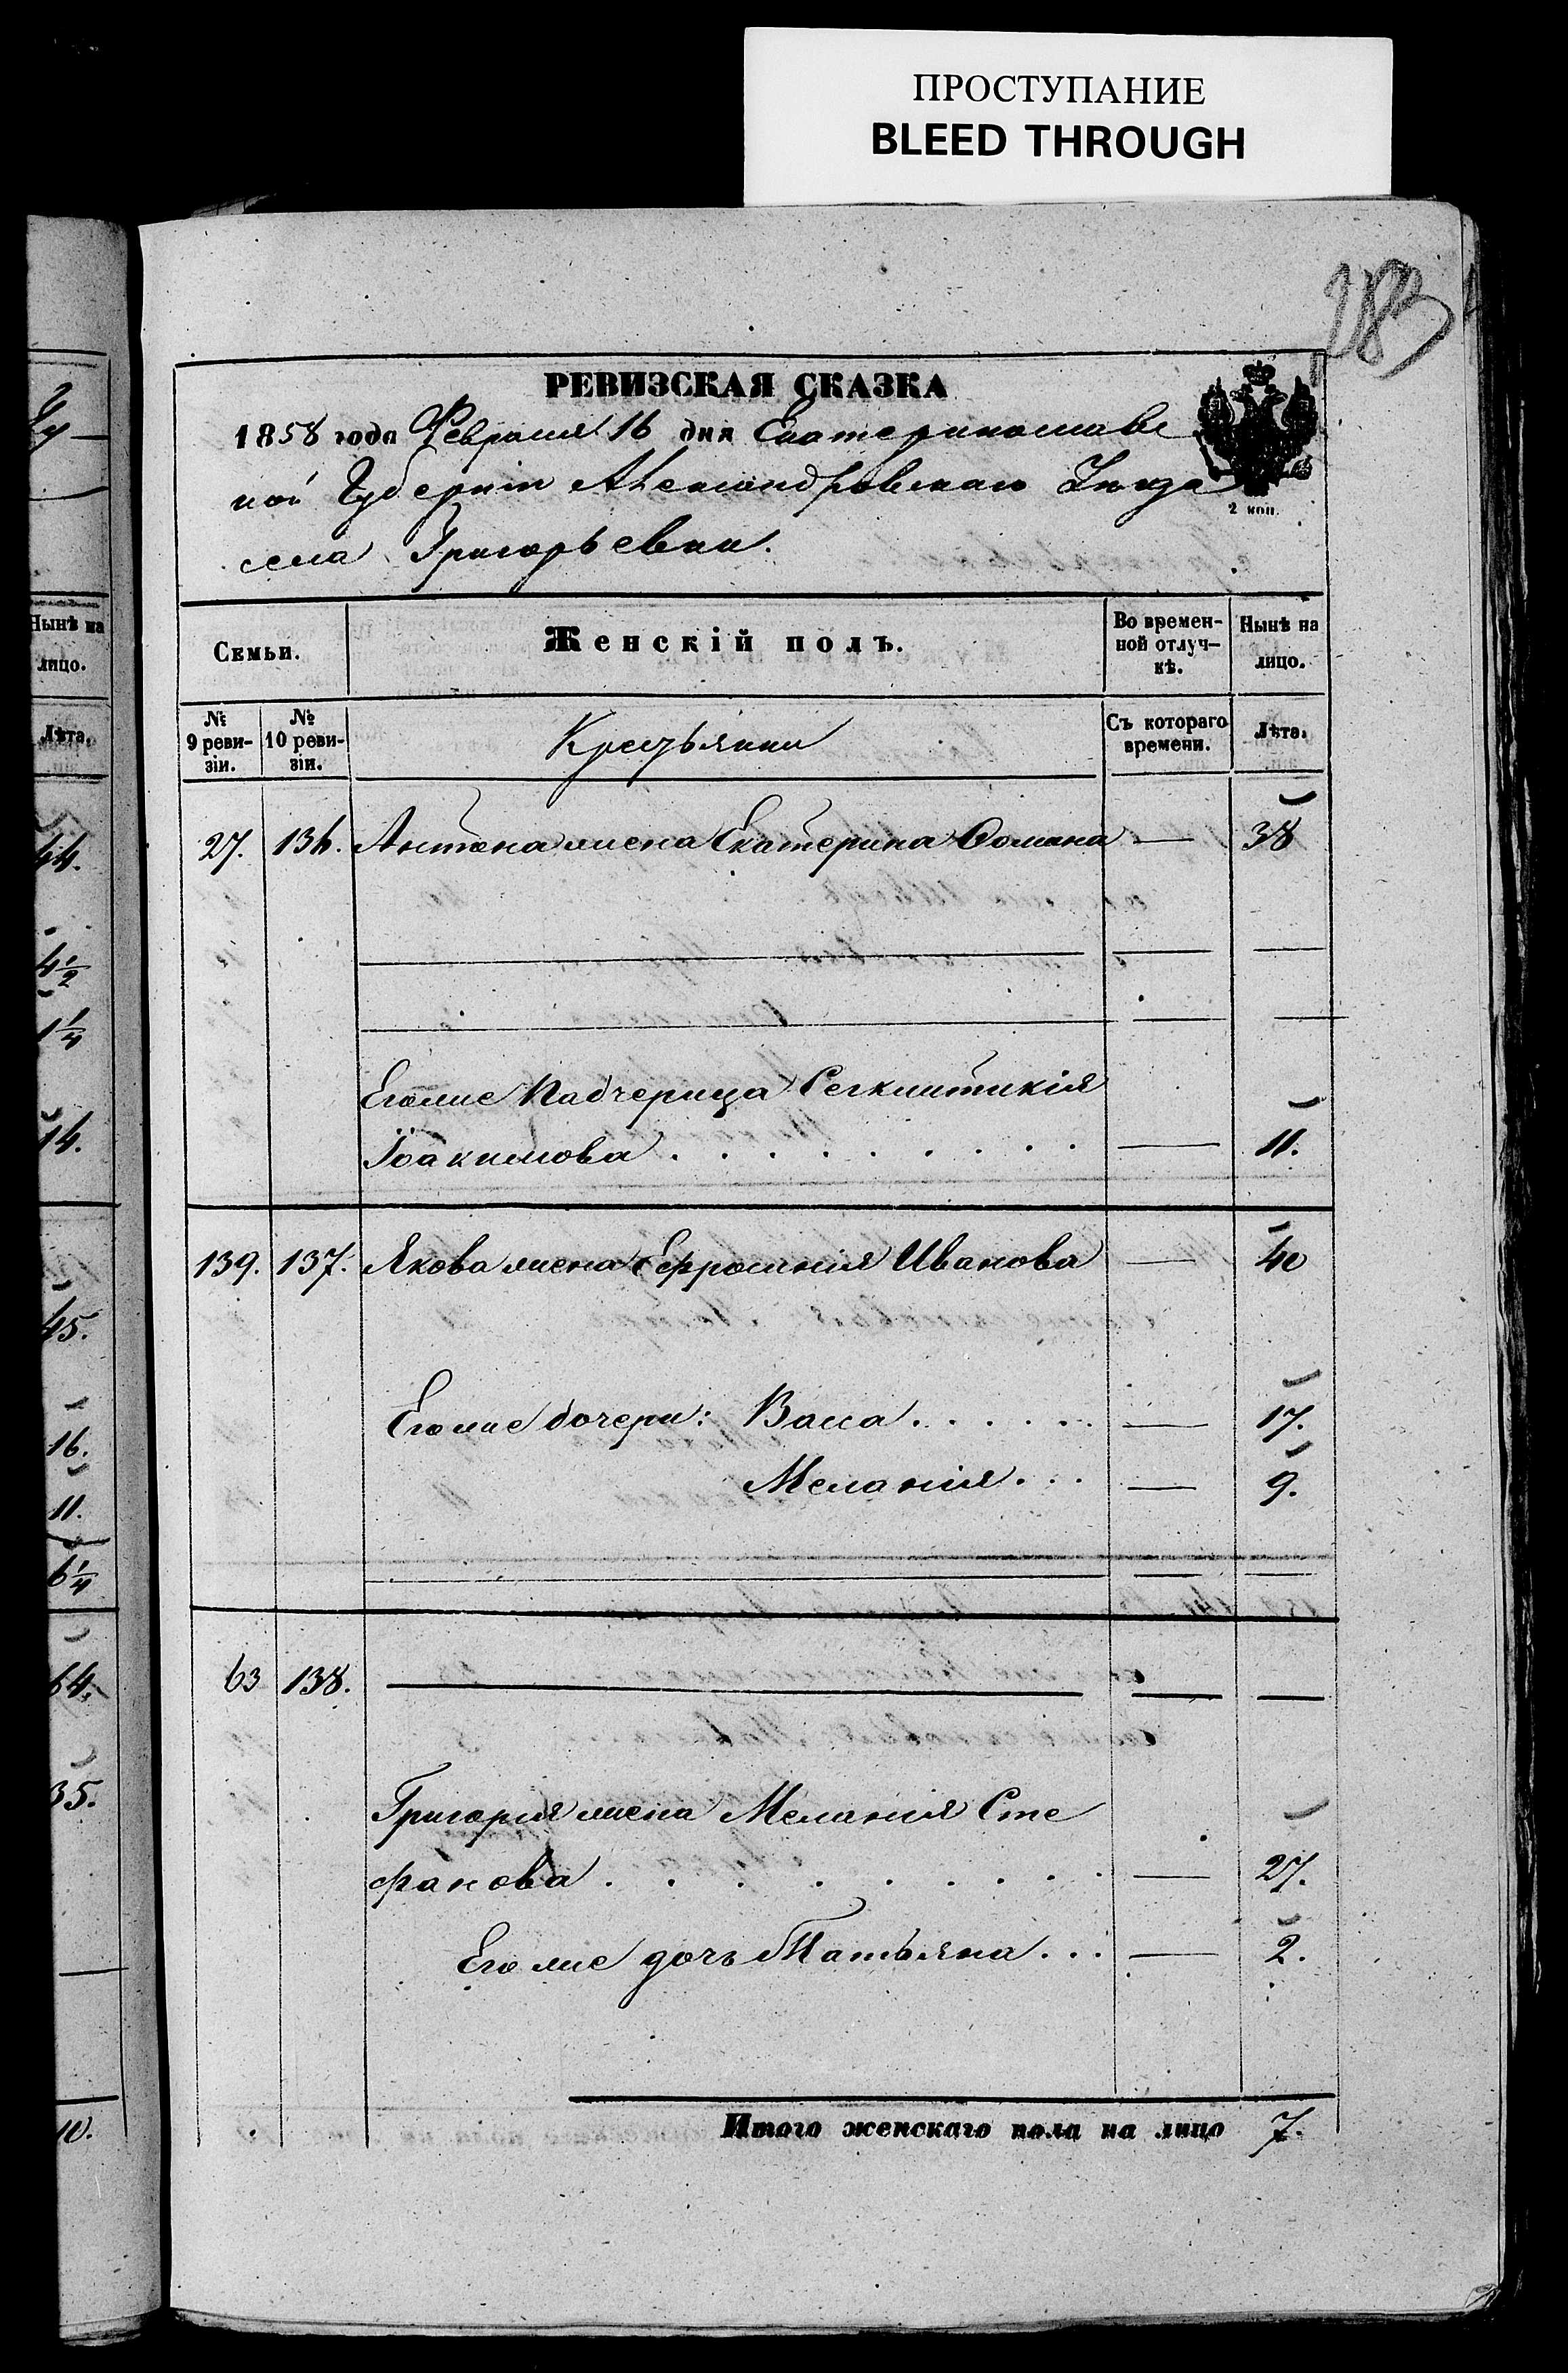 ПРОСТУПАНИЕ
BLEED THROUGH
283
РЕВИЗСКАЯ СКАЗКА
1858 года Февраля 16 дня Екатеринослав
ской Губерніи Александровскаго Уезда
села Григорьевки.
2 коп.
Семьи.
Женскій полъ.
Во времен-
ной отлуч-
кѣ.
Нынѣ на
лицо.
№ 9 реви-
зіи.
№ 10 реви-
зіи.
Крестьяни
Съ котораго
времени.
Лѣта.
27. 136. Антона жена Екатерина Фомина — 38
Его же падчерица
Іоакимова . . . . . . . . . — 11.
139. 137. Якова жена Ефросинія Иванова — 40
Его же дочери: Васса . . . . . — 17.
Меланія . . . — 9.
63 138. — — —
Григорія жена Меланія Сте
фанова . . . . . . . . . — 27.
Его же дочь Татьяна . . . — 2.
Итого женскаго пола на лицо 7.
Нынѣ на
лицо.
Лѣта.
44.
4 1/2
1 1/4
14.
45.
16.
11.
6 1/4
64.
35.
10.